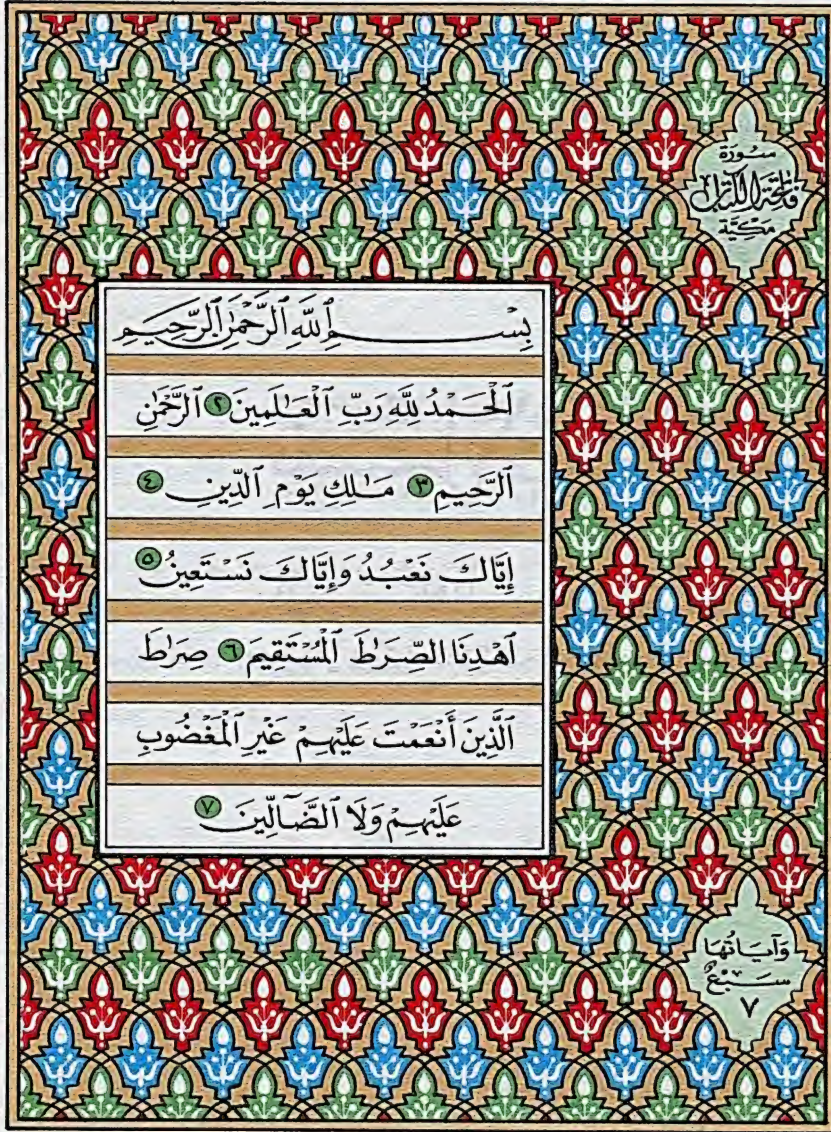 سُورَة
فَاتِحَةِ الكِتَابِ
مَكِّيَّة
بِسْمِ ٱللَّهِ ٱلرَّحْمَٰنِ ٱلرَّحِيمِ
ٱلْحَمْدُ لِلَّهِ رَبِّ ٱلْعَـٰلَمِينَ ٢ ٱلرَّحْمَٰنِ
ٱلرَّحِيمِ ٣ مَـٰلِكِ يَوْمِ ٱلدِّينِ ٤
إِيَّاكَ نَعْبُدُ وَإِيَّاكَ نَسْتَعِينُ ٥
ٱهْدِنَا ٱلصِّرَٰطَ ٱلْمُسْتَقِيمَ ٦ صِرَٰطَ
ٱلَّذِينَ أَنْعَمْتَ عَلَيْهِمْ غَيْرِ ٱلْمَغْضُوبِ
عَلَيْهِمْ وَلَا ٱلضَّآلِّينَ ٧
وَآيَاتُهَا
سَبْعٌ
٧